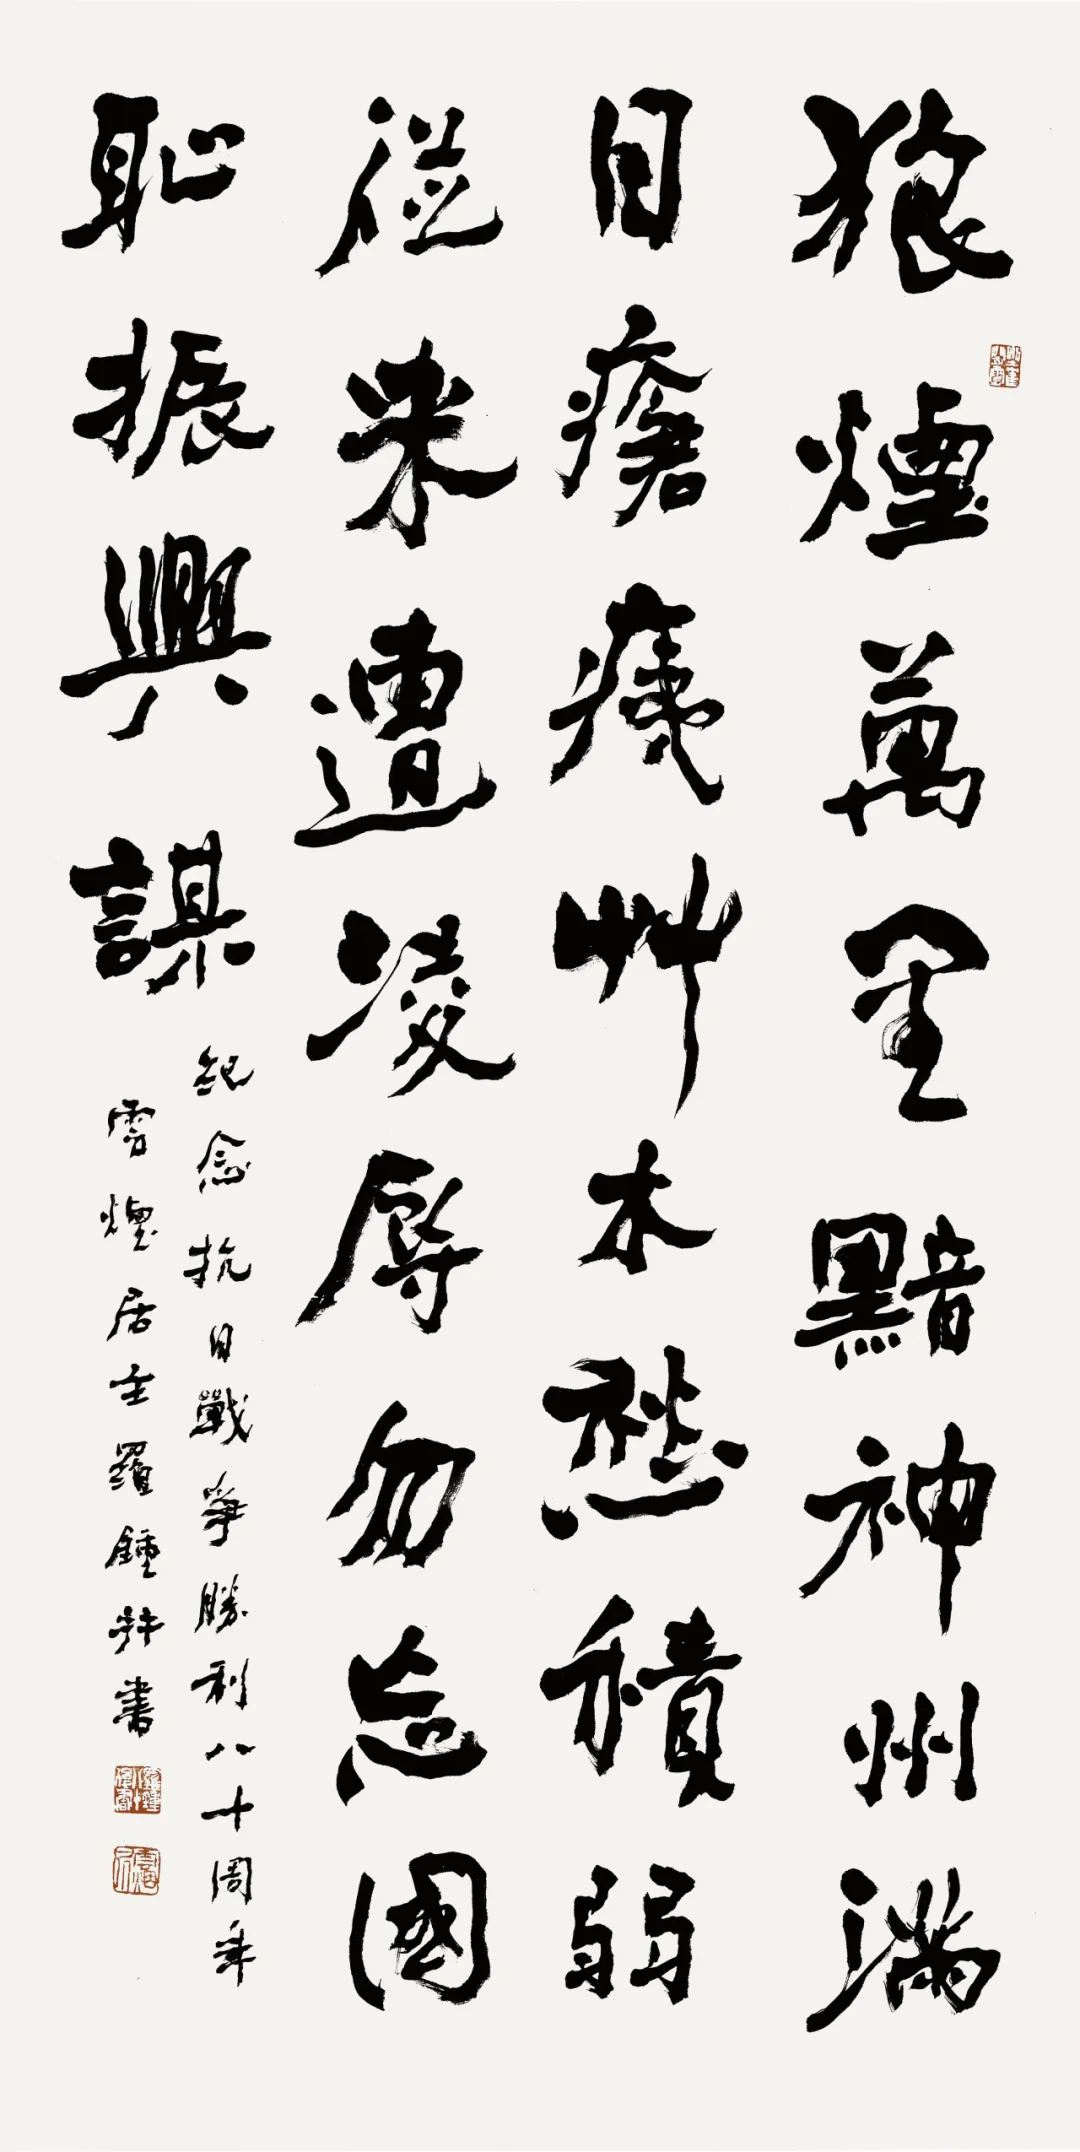 狼煙萬里黯神州滿
目瘡痍艸木愁積弱
從來遭凌辱勿忘國
恥振興謀
紀念抗日戰爭勝利八十周年
雪煙居主羅鍾書